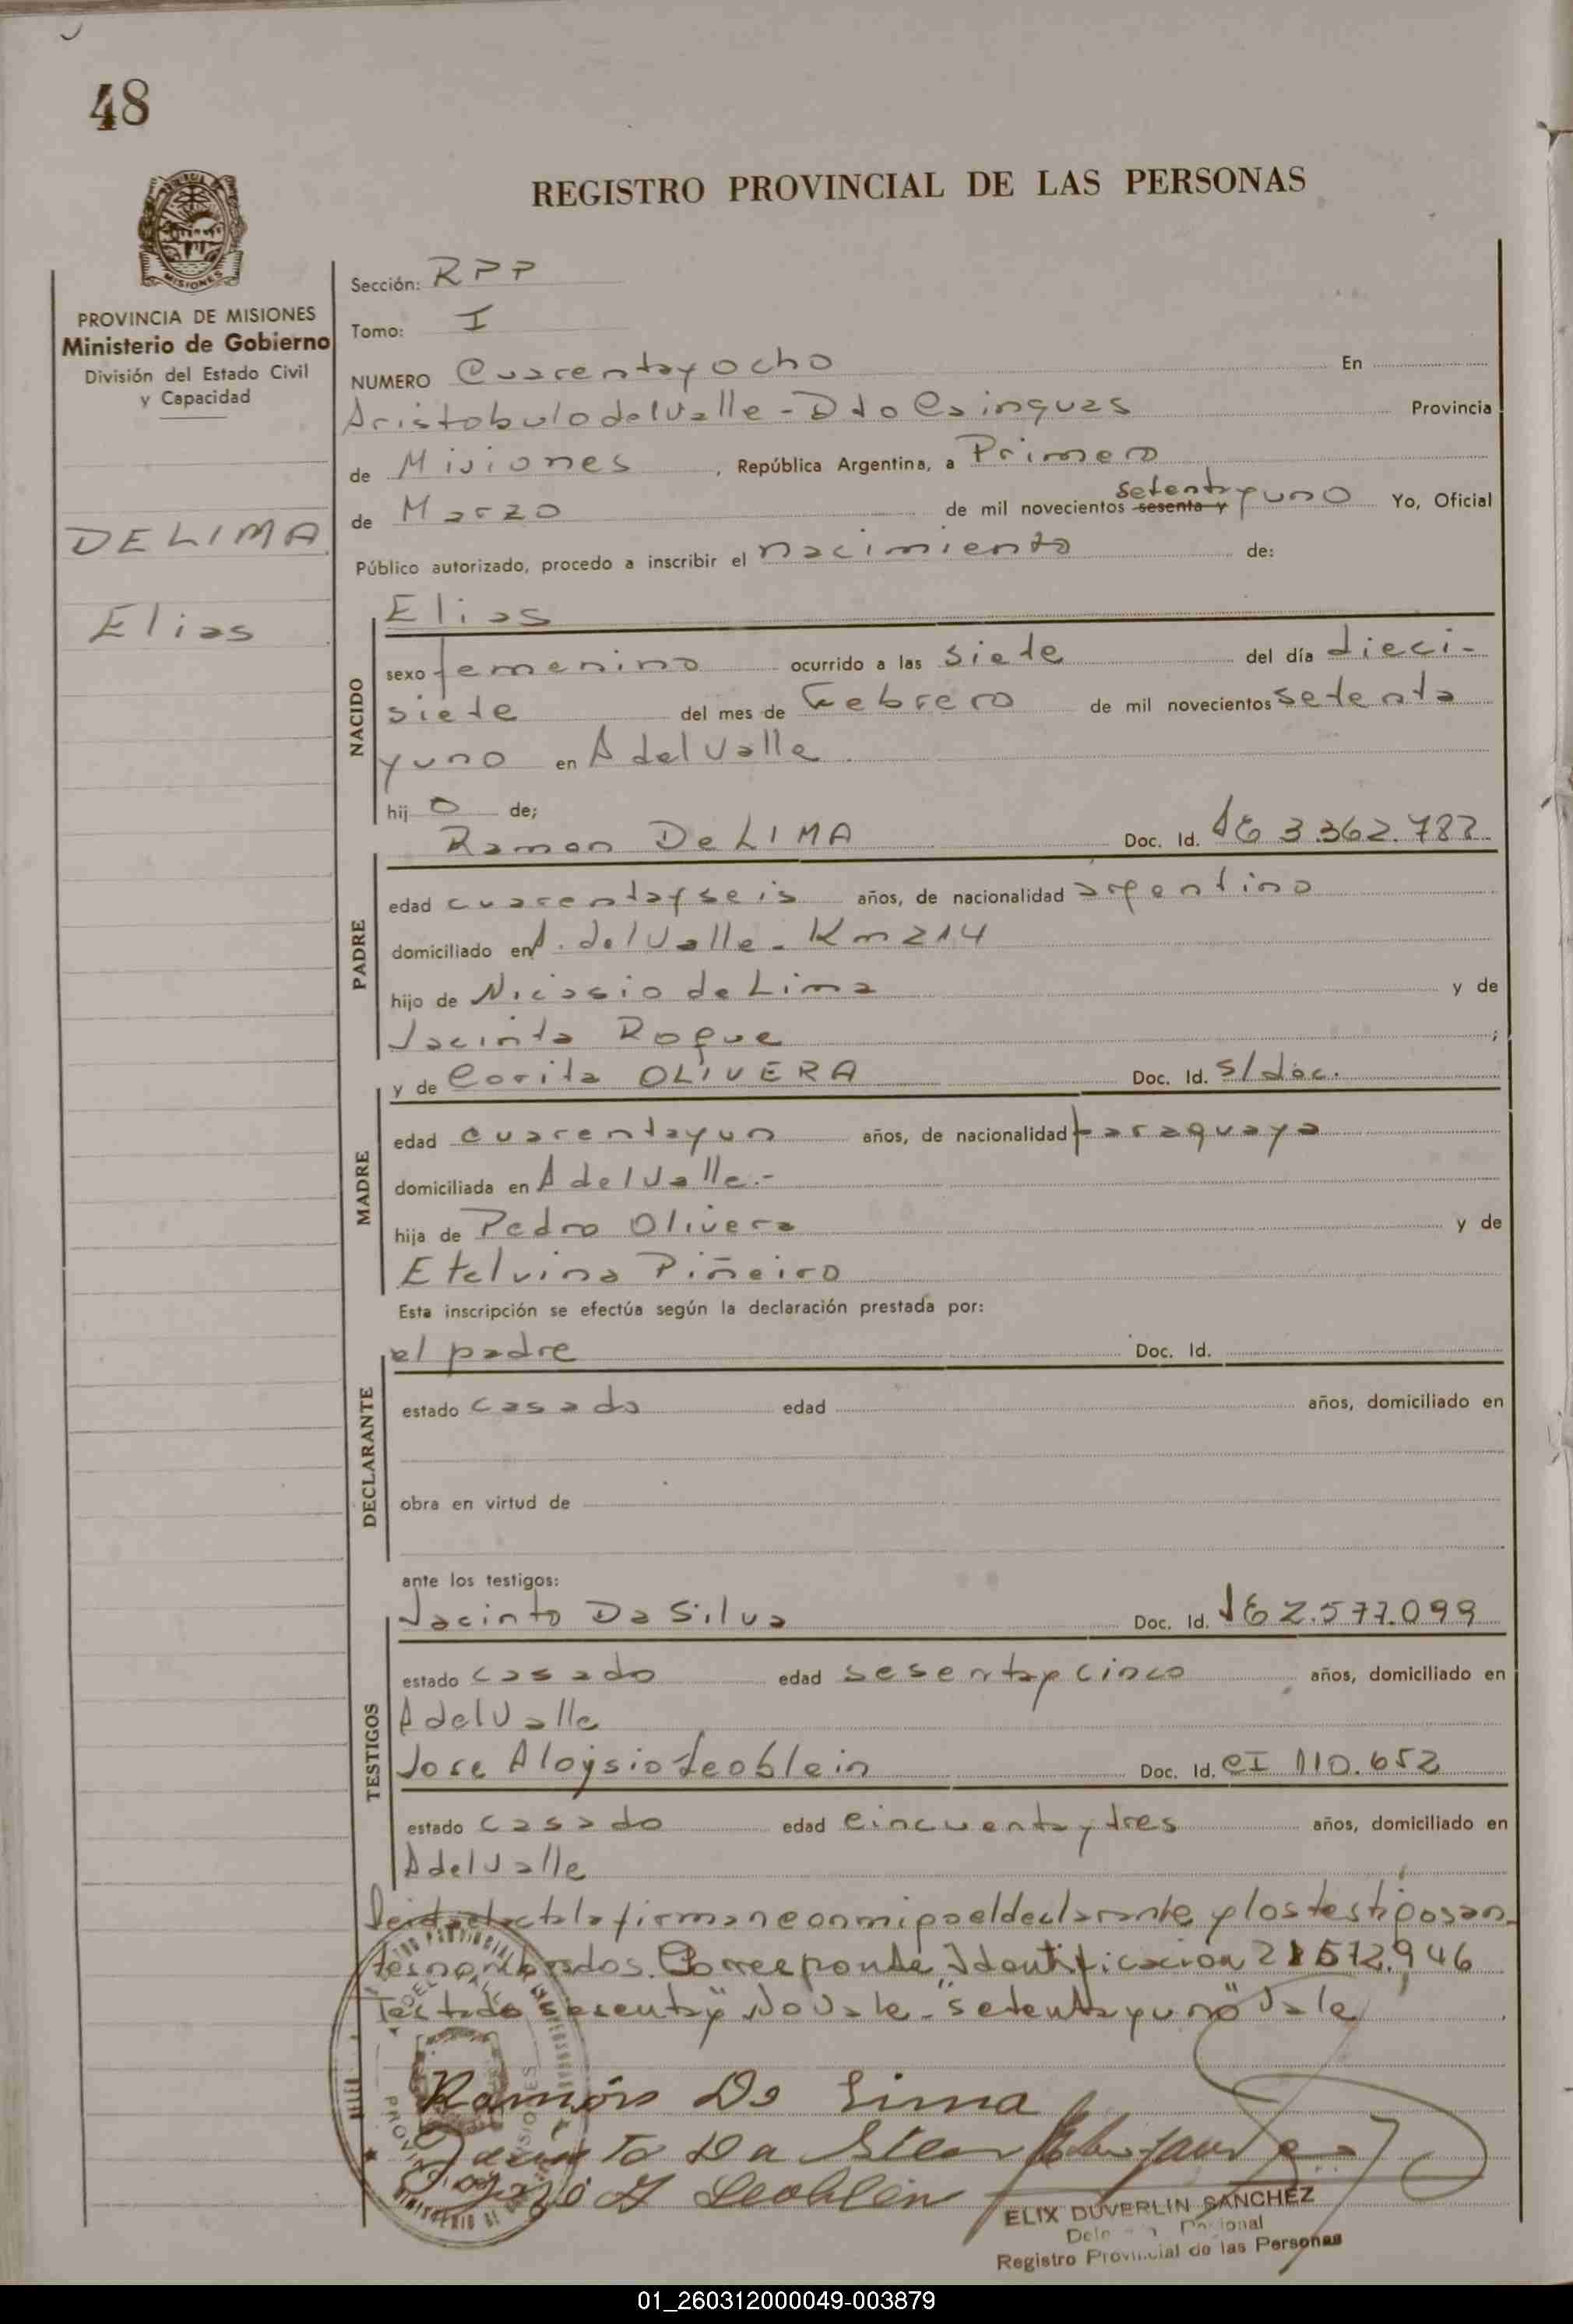 48
REGISTRO PROVINCIAL DE LAS PERSONAS
MISIONES
PROVINCIA DE MISIONES
Ministerio de Gobierno
División del Estado Civil
y Capacidad
DE LIMA
Elias
Sección: RPP
Tomo: I
NUMERO Cuarentayocho En
Aristobulo del Valle - Dto Cainguas Provincia
de Misiones, República Argentina, a Primero
de Marzo de mil novecientos sesenta y setentayuno Yo, Oficial
Público autorizado, procedo a inscribir el nacimiento de:
NACIDO
Elias
sexo femenino ocurrido a las siete del día dieci-
siete del mes de Febrero de mil novecientos setenta
yuno en A del Valle
hij o de;
PADRE
Ramon De LIMA Doc. Id. 3.362.782
edad cuarentayseis años, de nacionalidad argentino
domiciliado en A. del Valle - Km 214
hijo de Nicasio de Lima y de
Jacinta Roque ;
MADRE
y de Corita OLIVERA Doc. Id. s/doc.
edad cuarentayun años, de nacionalidad paraguaya
domiciliada en A del Valle.-
hija de Pedro Olivera y de
Etelvina Piñeiro
Esta inscripción se efectúa según la declaración prestada por:
DECLARANTE
el padre Doc. Id.
estado casado edad años, domiciliado en
obra en virtud de
ante los testigos:
TESTIGOS
Jacinto Da Silva Doc. Id. 2.577.099
estado casado edad sesentaycinco años, domiciliado en
A del Valle
Jose Aloysio Leoblein Doc. Id. CI 110.652
estado casado edad cincuentaytres años, domiciliado en
A del Valle
Leida el acta la firman conmigo el declarante y los testigos an-
tes nombrados. Corresponde Identificacion 21572.946
Testado "sesentay" No Vale - "setentayuno" Vale
Ramón De Lima
Jacinto Da Silva
José A Leoblein
ELIX DUVERLIN SANCHEZ
Registro Provincial de las Personas
01_260312000049-003879